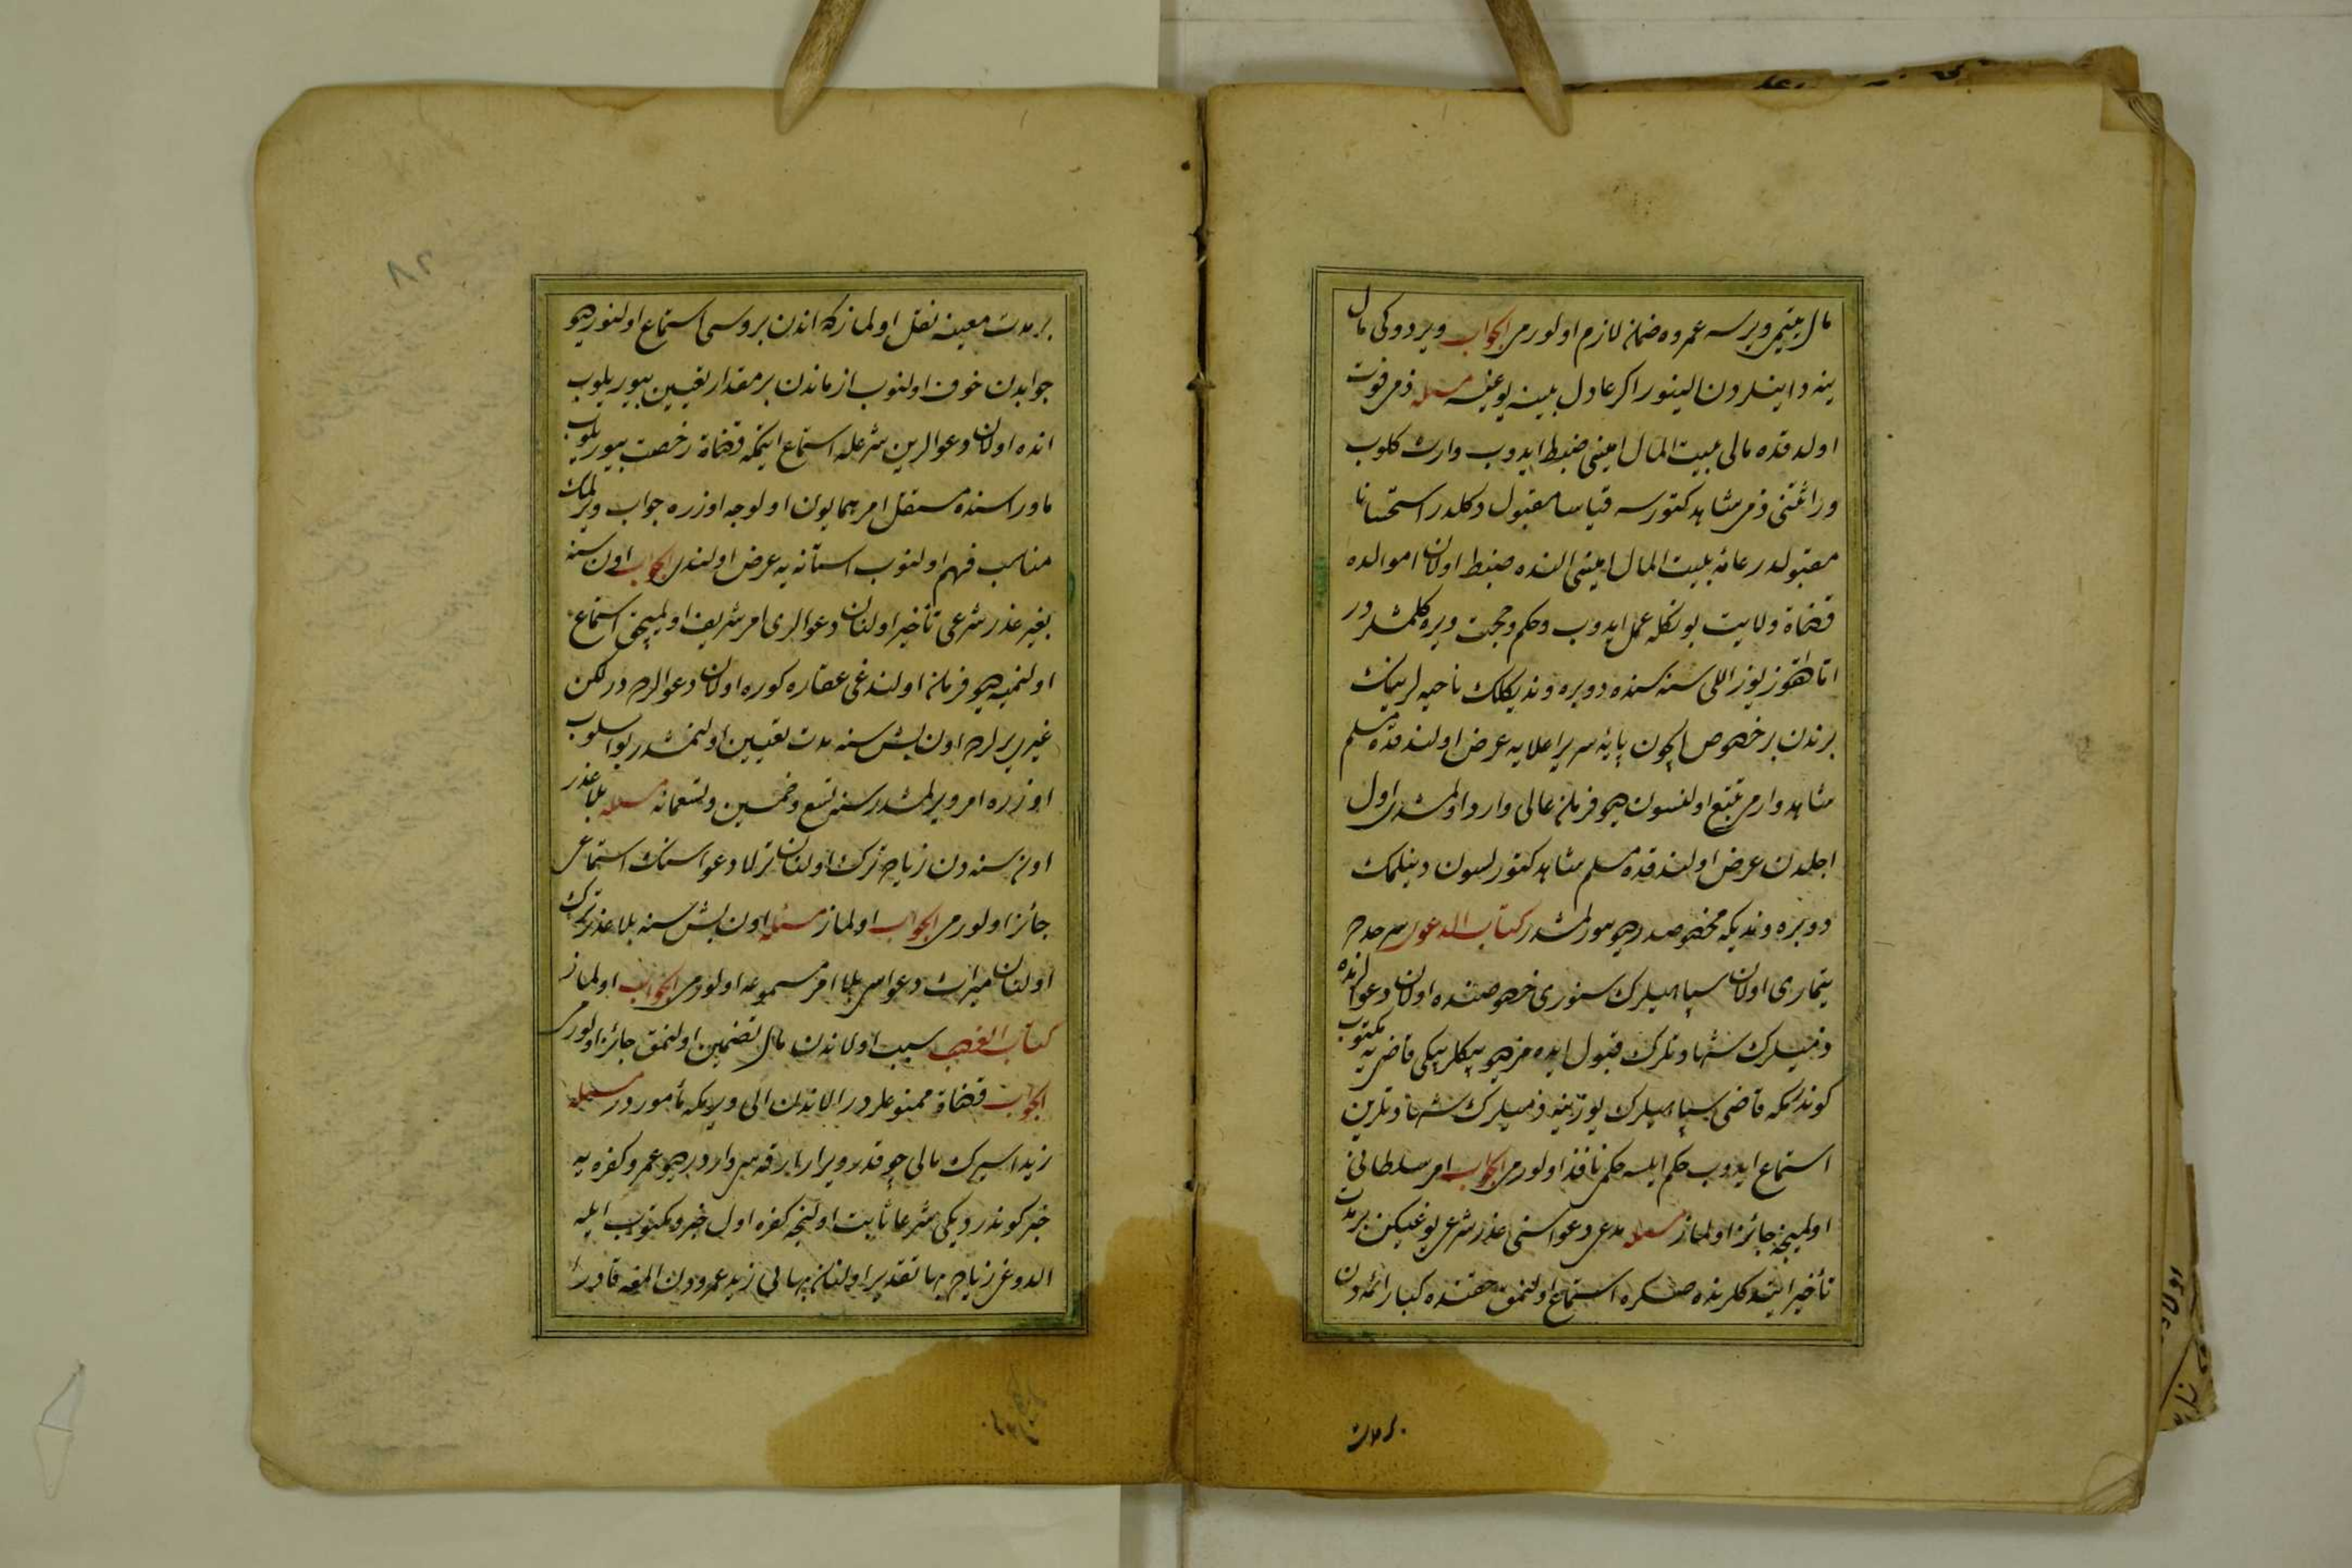 مال يتيمى ويرسه عمروه ضمان لازم اولورمى الجواب ويردوكى مال
ينه دايندن الينور اكر عادل بينه يوغيسه مسئله ذمى فوت
اولدقده مالى بيت المال امينى ضبط ايدوب وارث كلوب
وراثتنى ذمى شاهد كتورسه قياسا مقبول دكلدر استحسانا
مقبولدر عامه بيت المال امينى النده ضبط اولان اموالده
قضاة ولايت بونكله عمل ايدوب وحكم وحجت ويره كلمشلردر
اما طقوز يوز اللى سنه سنده دوبره وندیكلك ناحيه لرينك
برندن بر خصوص ايچون پايه سرير اعلايه عرض اولندقده مسلم
شاهد وارمى تتبع اولنسون ديو فرمان عالى وارد اولمشدر اول
اجلدن عرض اولندقده مسلم شاهد كتورلسون دينلمك
دوبره وندیكه مخصوصدر ديو يورلمشدر كتاب الدعوى سرحدده
تيمارى اولان سپاهيلرك سنورى خصوصنده اولان دعوالرنده
ذميلرك شهادتلرك قبول ايده سز ديو بيكلربيكى قاضى يه مكتوب
كوندرمكه قاضى سپاهيلرك يوزينه ذميلرك شهادتلرين
استماع ايدوب حكم ايلسه حكمى نافذ اولورمى الجواب امر سلطانى
اولمينجه جائز اولماز مسئله مدعى دعواسنى عذر شرعى يوغيكن بر مدت
تأخير ايتدكلرنده صكره استماع اولنمق حقنده كبار ائمه دن
بر مدت
بر مدت معينه نقل اولماز كه اندن بروسى استماع اولنور ديو
جوابدن خوف اولنوب ازماندن بر مقدار تعيين بيوريلوب
انده اولان دعوالرين شرعله استماع ايتمكه قضاة رخصت بيوريلوب
ماوراسنده مستقل امر همايون اولوجه اوزره جواب ويرلمك
مناسب فهم اولنوب استانه يه عرض اولندى الجواب اون سنه
بغير عذر شرعى تأخير اولنان دعوالرى امر شريف اولمينجه استماع
اولنميه ديو فرمان اولندغى عقاره كوره اولان دعوالرده در لكن
غير يرلرده اون بش سنه مدت تعيين اولنمشدر بو اسلوب
اوزره امر ويرلمشدر سنه تسع وخمسين وتسعمائه مسئله بلا عذر
اون سنه دن زياده ترك اولنان ترلا دعواسنك استماعى
جائز اولورمى الجواب اولماز مسئله اون بش سنه بلا عذر ترك
اولنان ميراث دعواسى بلا امر مسموعه اولورمى الجواب اولماز
كتاب الغصب سبب اولاندن مال تضمين اولنمق جائز اولورمى
الجواب قضاة ممنوعلردر الاندن الى ويرمكه مأموردر مسئله
زيد اسيرك مالى چوقدر ويرار يارقه سى واردر ديو عمرو كفره يه
خبر كوندرديكى شرعا ثابت اولنجه كفره اول خبر ومكتوب ايله
الدوغى زياده بها تقدير اولنان بهايى زيد عمرودن المغه قادر
۸۲